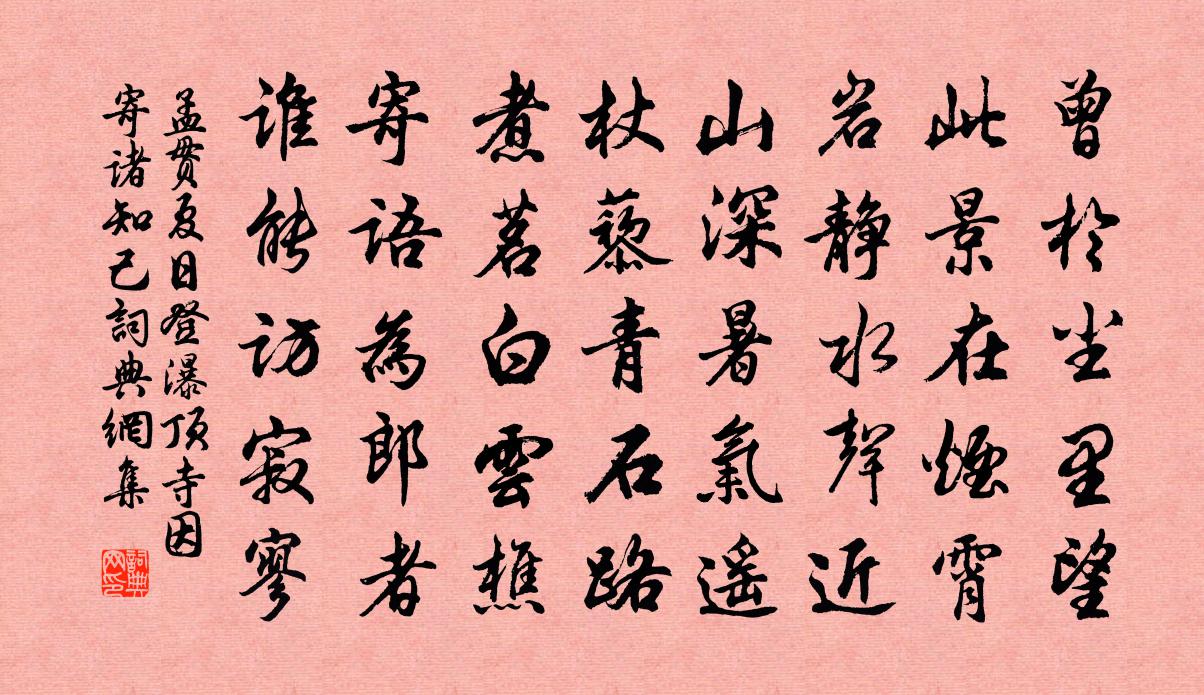 曾於尘里望
此景在烟霄
岩静水声近
山深暑氣遥
杖藜青石路
煮茗白雲樵
寄语為郎者
谁能访寂寥
孟贯夏日登瀑顶寺因
寄诸知己詞典網集
詞典
网印